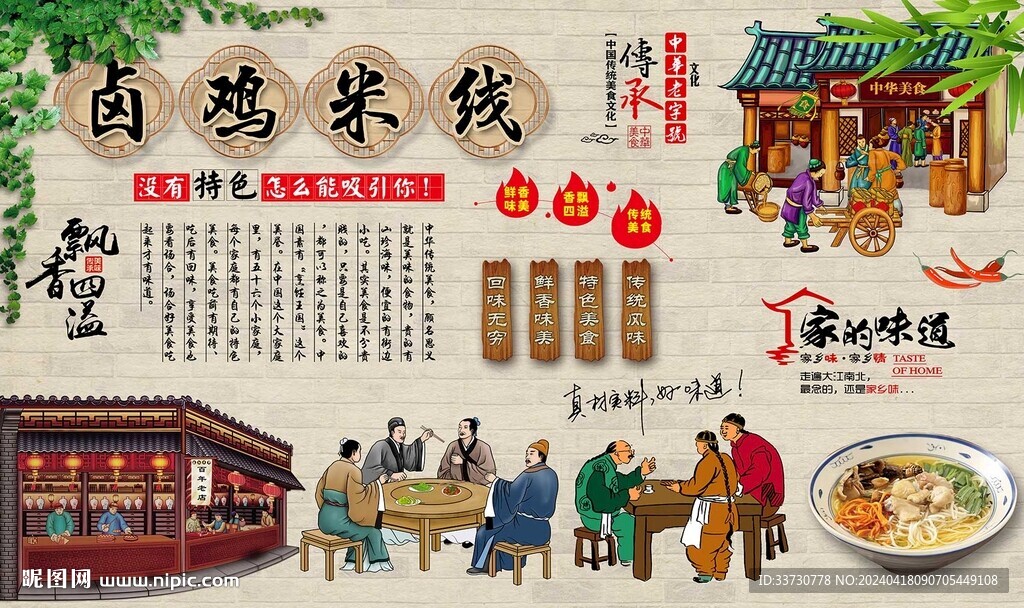 卤鸡米线
没有特色怎么能吸引你!
飘香四溢
美味传承
中华传统美食,顾名思义
就是美味的食物,贵的有
山珍海味,便宜的有街边
小吃。其实美食是不分贵
贱的,只要是自己喜欢的
,都可以称之为美食。中
国素有“烹饪王国”这个
美誉。在中国这个大家庭
里,有五十六个小家庭,
每个家庭都有自己的特色
美食。美食吃前有期待、
吃后有回味,享受美食也
要看场合,场合好美食吃
起来才有味道。
文化
中华老字號
傳承
【中国传统美食文化】
中華美食
鲜香
味美
香飘
四溢
传统
美食
传统风味
特色美食
鲜香味美
回味无穷
中华美食
家的味道
家乡味·家乡情
TASTE
OF HOME
走遍大江南北,
最念的,还是家乡味...
真材实料,好味道!
百年老店
昵图网 www.nipic.com
ID:33730778 NO:20240418090705449108